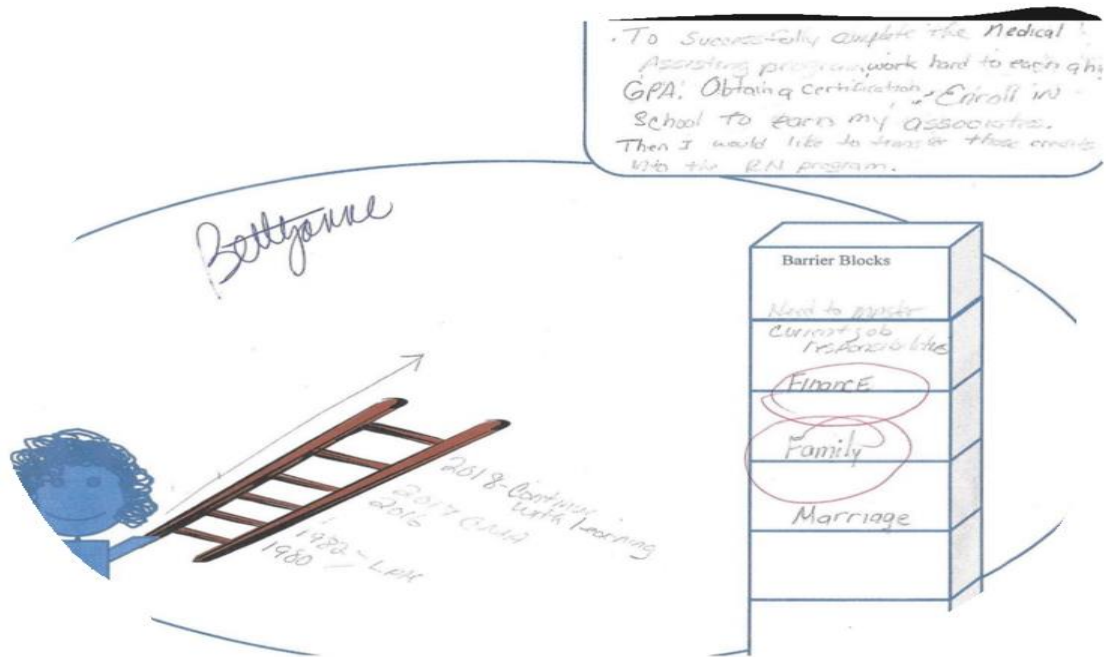 . To Successfully complete the Medical
Assisting program, work hard to earn a
GPA. Obtaining Certification. Enroll in
School to earn my associates.
Then I would like to transfer those credits
into the RN program.
Bettyanne
Barrier Blocks
Need to master
current job
responsibilities
FinancE
Family
Marriage
2018-Continue
with Learning
2017 CMA
2016
1982 - LPN
1980